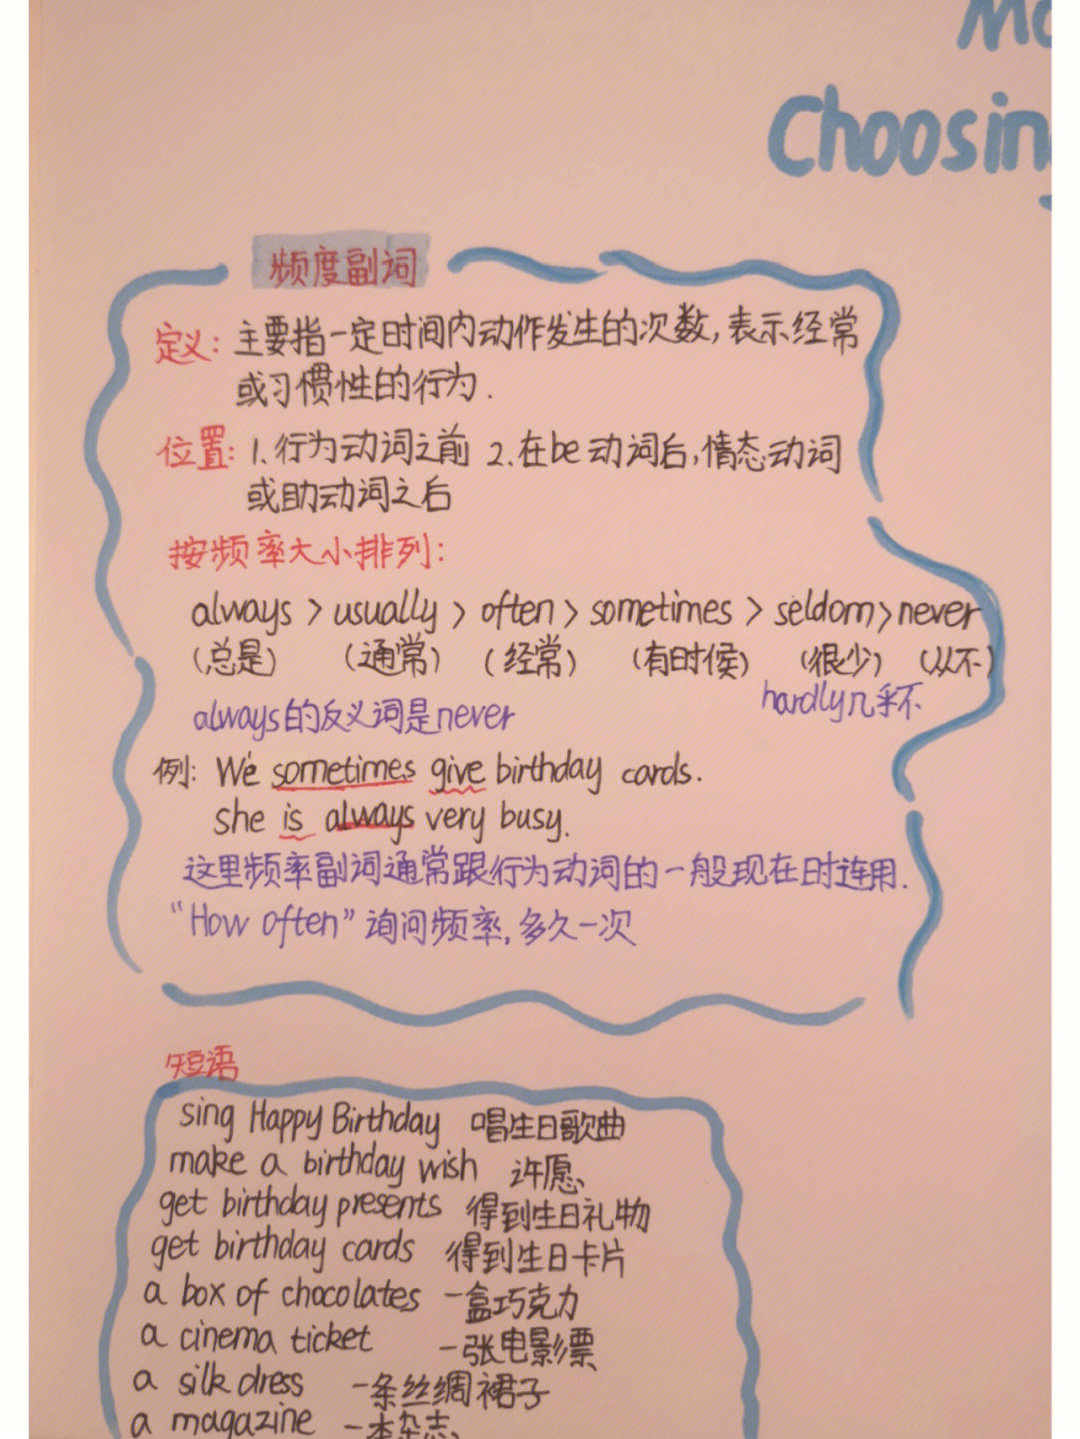 Mo
Choosing
频度副词
定义: 主要指一定时间内动作发生的次数,表示经常
或习惯性的行为.
位置: 1.行为动词之前 2.在be动词后,情态动词
或助动词之后
按频率大小排列:
always > usually > often > sometimes > seldom > never
(总是) (通常) (经常) (有时候) (很少) (从不)
always的反义词是never hardly几乎不
例: We sometimes give birthday cards.
she is always very busy.
这里频率副词通常跟行为动词的一般现在时连用.
"How often"询问频率,多久一次
短语
sing Happy Birthday 唱生日歌曲
make a birthday wish 许愿
get birthday presents 得到生日礼物
get birthday cards 得到生日卡片
a box of chocolates 一盒巧克力
a cinema ticket 一张电影票
a silk dress 一条丝绸裙子
a magazine 一本杂志